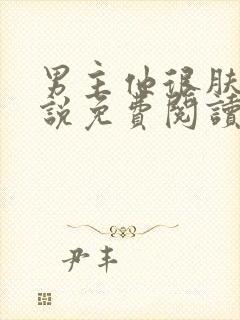 男主他很肤
說免費閱讀
尹丰